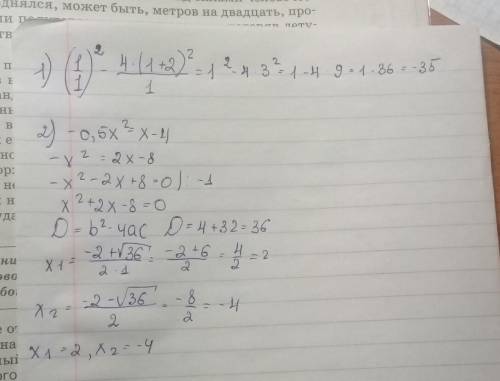 однялся, может быть, метров на двадцать, про-
1) (1/1)² - 4·(1+2)²/1 = 1² - 4 · 3² = 1 - 4 · 9 = 1 · 36 = -35
2) -0,5x² = x - 4
-x² = 2x - 8
-x² - 2x + 8 = 0 | : -1
x² + 2x - 8 = 0
D = b² - 4ac D = 4 + 32 = 36
x1 = (-2 + √36)/(2·1) = (-2+6)/2 = 4/2 = 2
x2 = (-2 - √36)/2 = -8/2 = -4
x1 = 2, x2 = -4